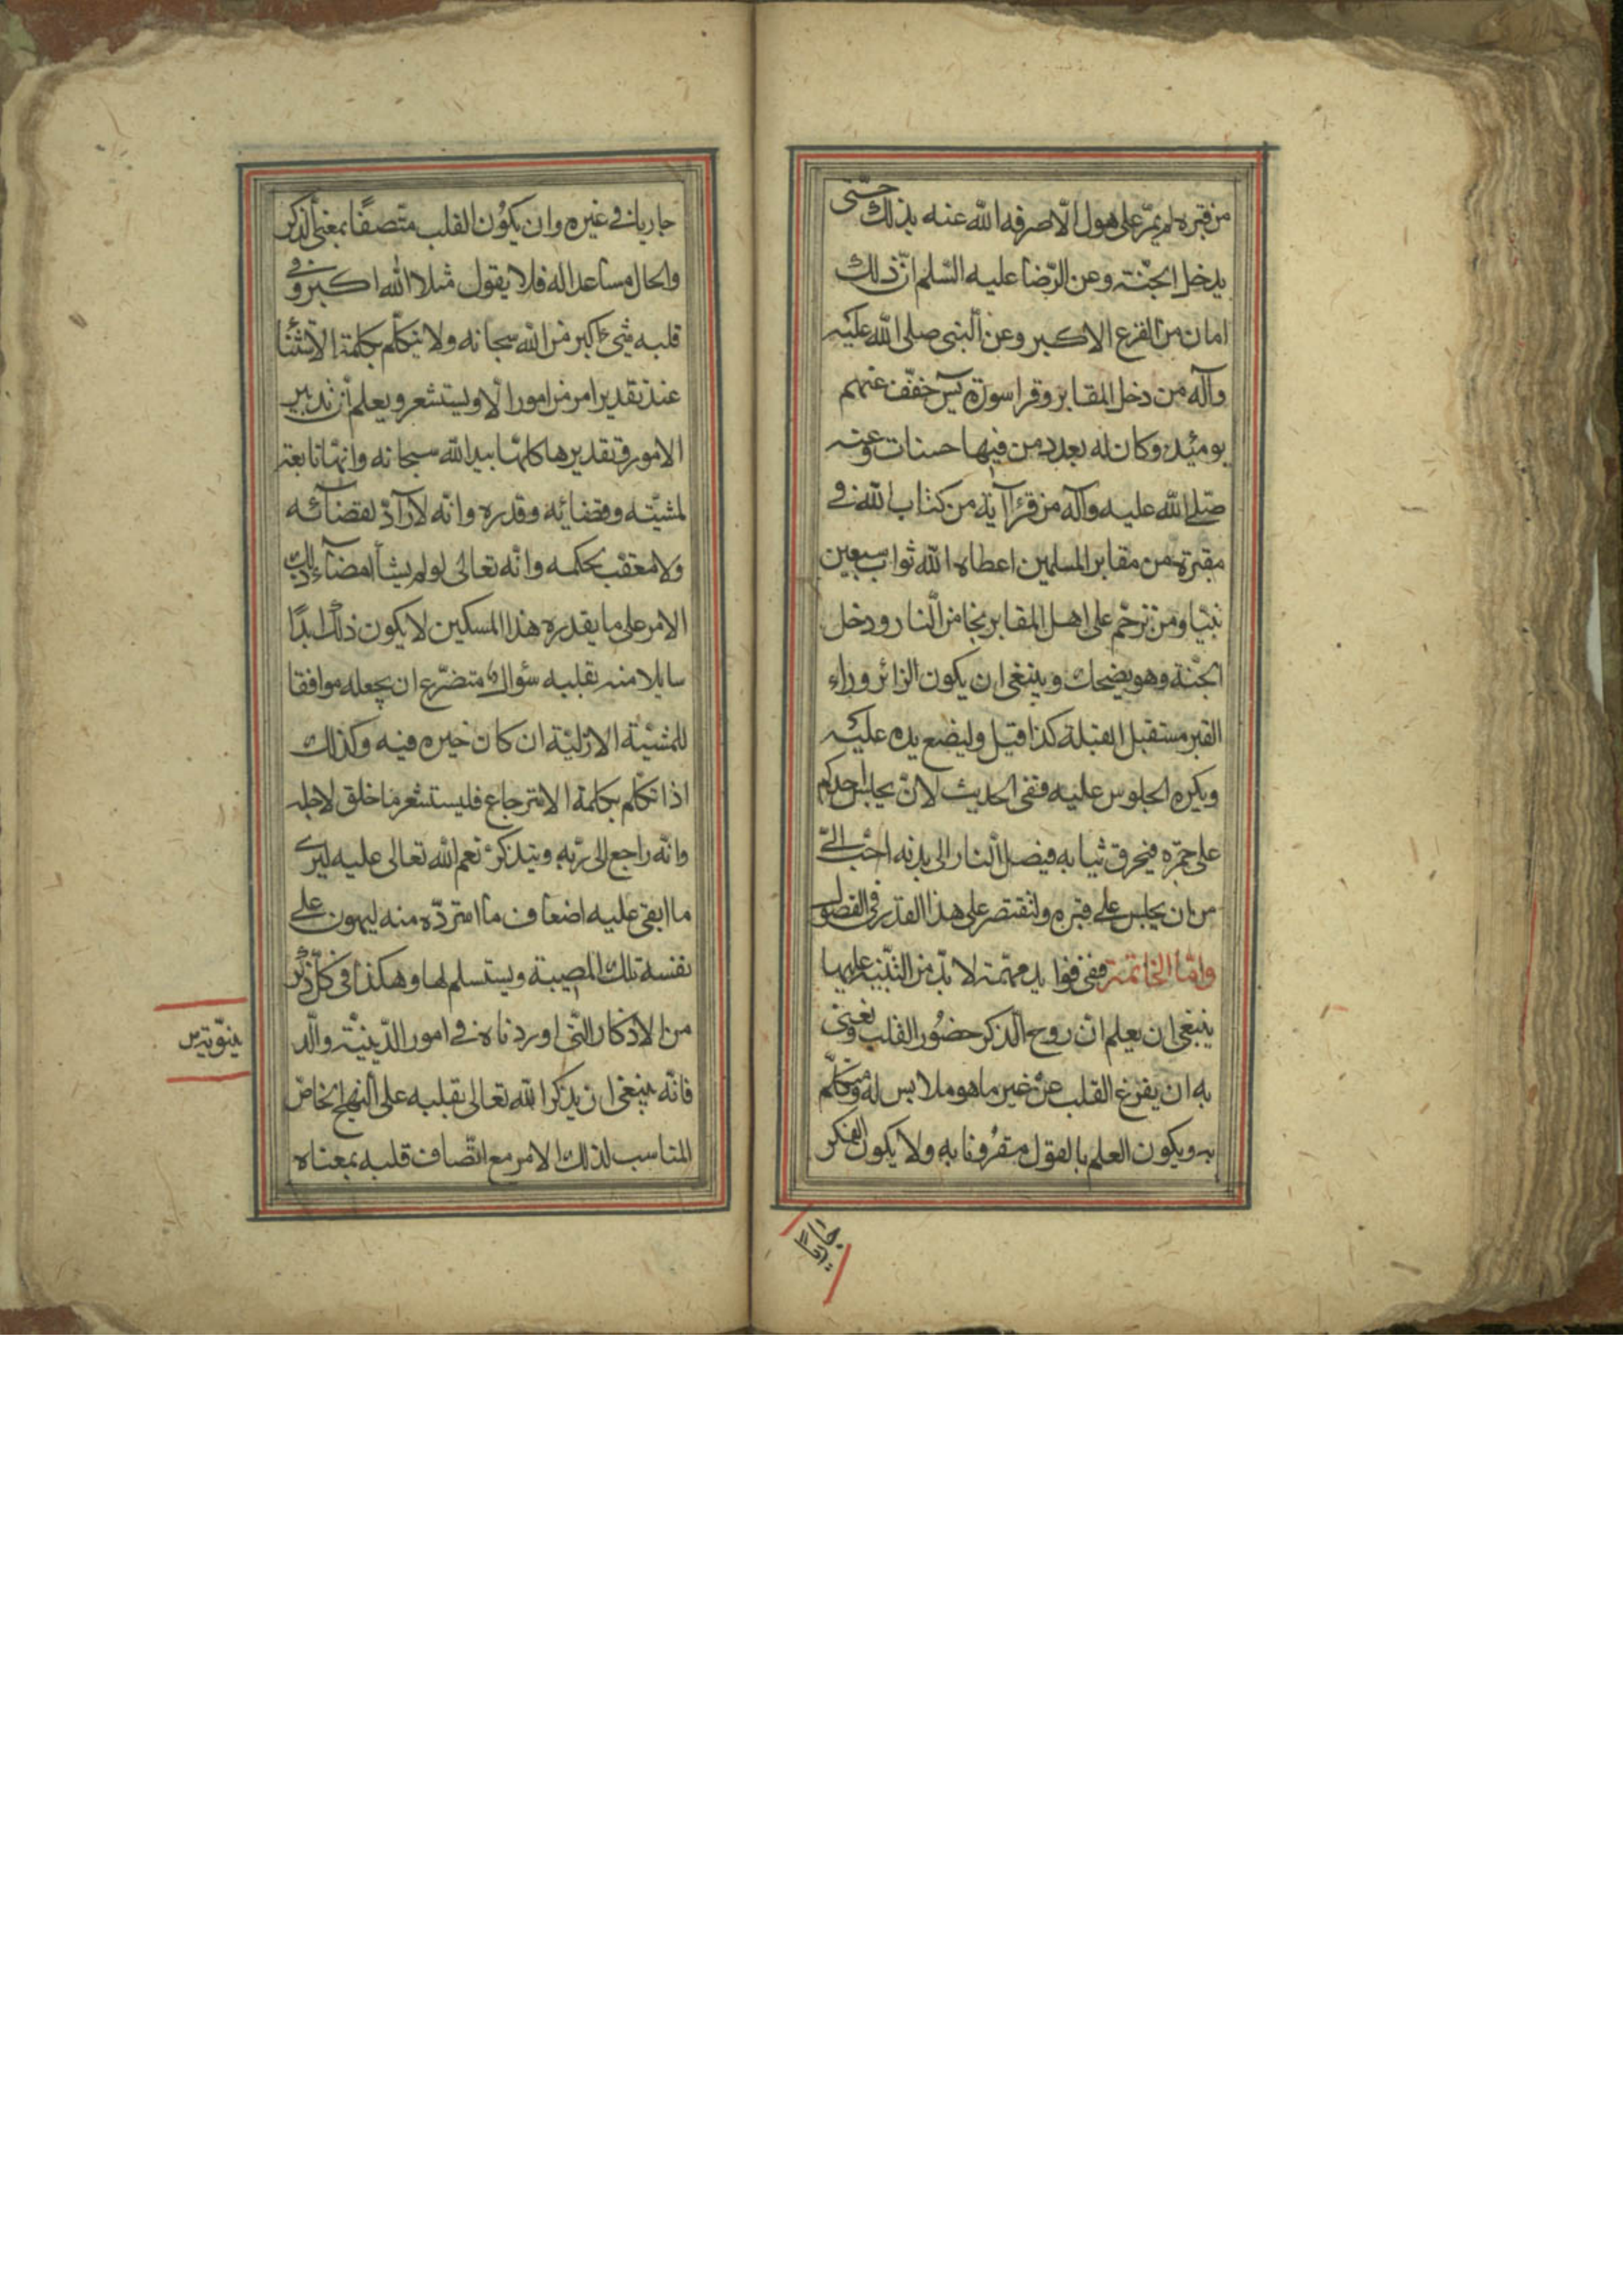 من قبره لم يمرّ على هول الّا صرفه الله عنه بذلك حتّى
يدخل الجنّة وعن الرّضا عليه السّلم انّ ذلك
امان من الفزع الاكبر وعن النبى صلى الله عليه
وآله من دخل المقابر وقرا سورة يس خفّف عنهم
يومئذ وكان له بعدد من فيها حسنات وعنه
صلّى الله عليه وآله من قرأ آية من كتاب الله فى
مقبرة من مقابر المسلمين اعطاه الله ثواب سبعين
نبيّا ومن ترحّم على اهل المقابر نجا من النار ودخل
الجنّة وهو يضحك وينبغى ان يكون الزائر وراء
القبر مستقبل القبلة كذا قيل وليضع يده عليه
ويكره الجلوس عليه ففى الحديث لانّ يجلس احدكم
على جمرة فيحرق ثيابه فيصل النار الى بدنه احبّ الىّ
من ان يجلس على قبره ولنقتصر على هذا القدر فى الفصول
وامّا الخاتمة ففى فوايد مهمّة لا بدّ من التنبيه عليها
ينبغى ان يعلم انّ روح الذكر حضُور القلب ونعنى
به ان يفرغ القلب عن غير ما هو ملابس له ومتكلّم
به ويكون العلم بالقول مقرُونا به ولا يكون الفكر
جارياً
جاريا فى غيره وان يكوُن القلب متّصفًا بمعنى الذكر
والحال مساعدا له فلا يقول مثلا الله اكبر وفى
قلبه شئ اكبر من الله سبحانه ولا يتكلّم بكلمة الاستثنا
عند تقدير امر من امور الّا ويستشعر ويعلم ان تدبير
الامور وتقديرها كلها بيد الله سبحانه وانّها تابعة
لمشيّته وقضائه وقدره وانّه لا رآدّ لقضائه
ولا معقب لحكمه وانّه تعالى لو لم يشأ امضآء ذلك
الامر على ما يقدره هذا المسكين لا يكون ذلك ابدًا
سايلا منه بقلبه سؤال متضرّع ان يجعله موافقا
للمشيّة الازليّة ان كان خيره فيه وكذلك
اذا تكلّم بكلمة الاسترجاع فليستشعر ما خلق لاجله
وانّه راجع الى ربّه ويتذكر نعم الله تعالى عليه ليرى
ما ابقى عليه اضعاف ما استردّه منه ليهون على
نفسه تلك المصيبة ويستسلم لها وهكذا فى كلّ ذكر
من الاذكار التى اوردناه فى امور الدّينيّة والّد
نيّوية س
فانّه ينبغى ان يذكر الله تعالى بقلبه على النهج الخاصّ
المناسب لذلك الامر مع اتّصاف قلبه بمعناه